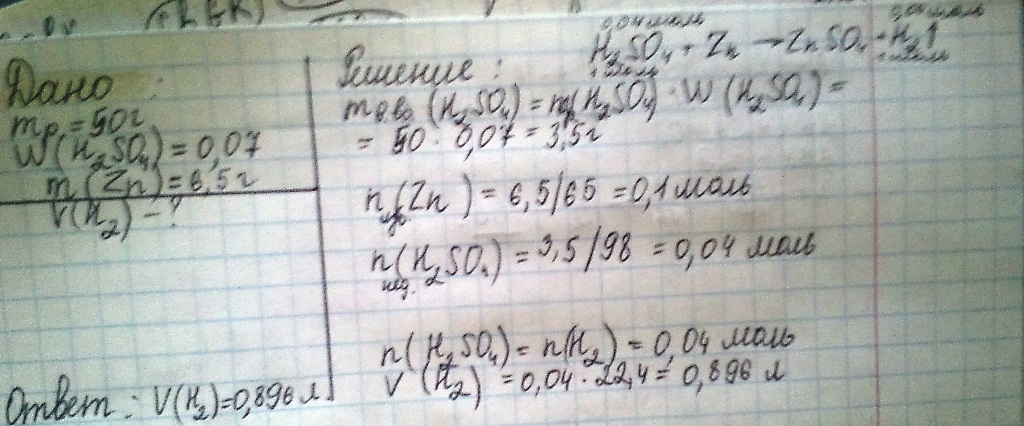 Дано:
mр. = 50г
W(H₂SO₄) = 0,07
m(Zn) = 6,5г
V(H₂) - ?
Ответ: V(H₂)=0,896 л
Решение:
0,04 моль 0,04 моль
H₂SO₄ + Zn → ZnSO₄ + H₂↑
1 моль 1 моль
mв-ва (H₂SO₄) = mр(H₂SO₄) · W(H₂SO₄) =
= 50 · 0,07 = 3,5г
n(Zn) = 6,5/65 = 0,1 моль
изб
n(H₂SO₄) = 3,5/98 = 0,04 моль
нед.
n(H₂SO₄) = n(H₂) = 0,04 моль
V(H₂) = 0,04 · 22,4 = 0,896 л